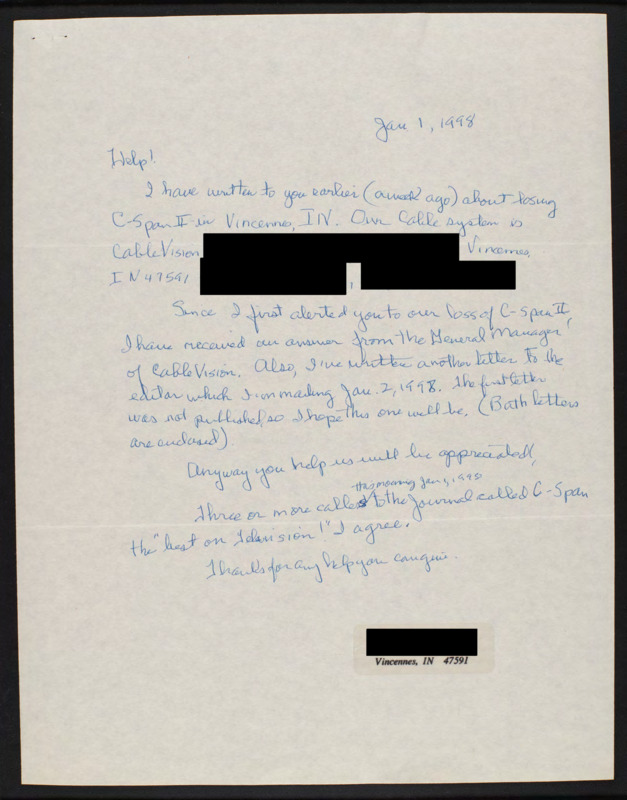 Jan 1, 1998
Help!
I have written to you earlier (a week ago) about losing
C-Span II in Vincennes, IN. Our Cable system is
CableVision Vincennes,
IN 47591 ,
Since I first alerted you to our loss of C-Span II
I have received an answer from the General Manager
of CableVision. Also, I've written another letter to the
editor which I'm mailing Jan. 2, 1998. The first letter
was not published, so I hope this one will be. (Both letters
are enclosed)
Anyway you help us will be appreciated!
this morning Jan 1, 1998
Three or more callers to the Journal called C-Span
the "best on Television!" I agree.
Thanks for any help you can give.
Vincennes, IN 47591